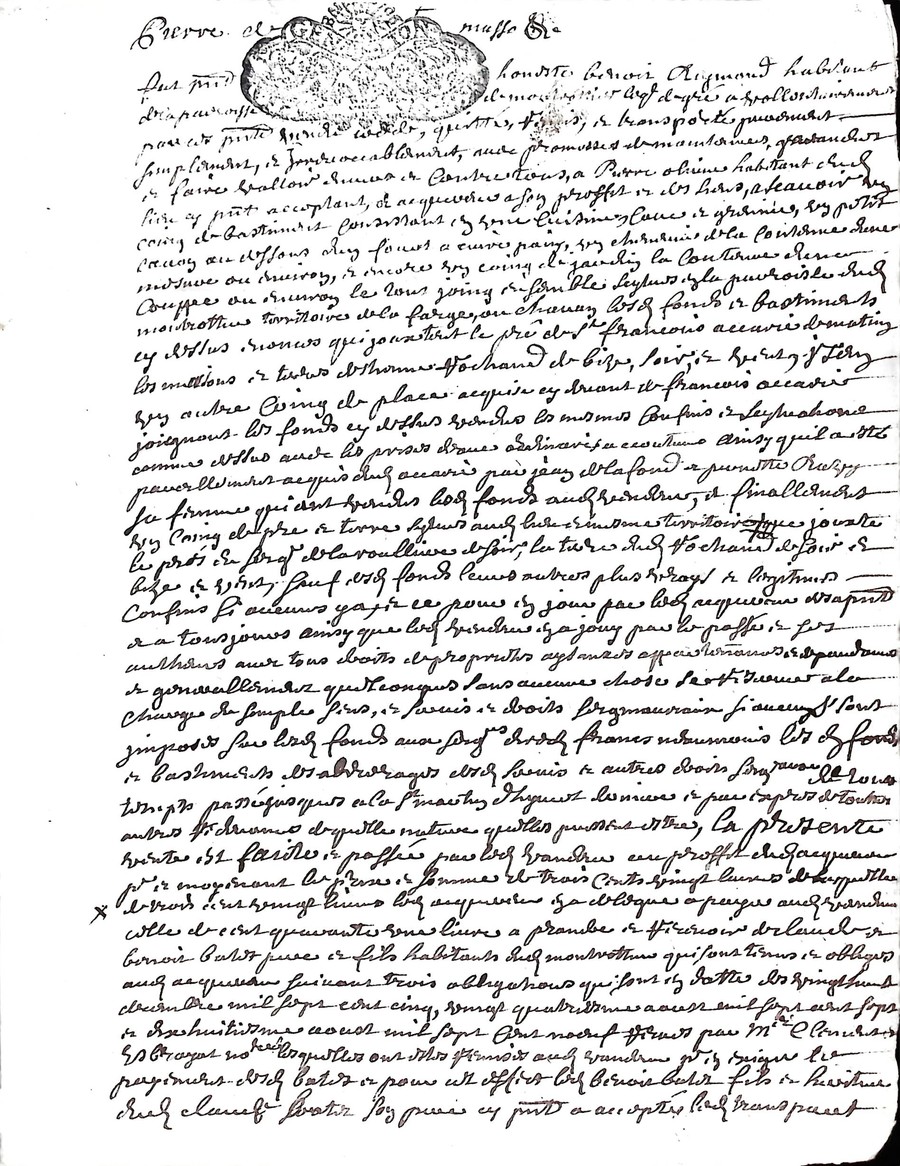 Pierre de masso &c
fut pnt honeste benoit Raymond habitant
de la parroisse de gré a vollontairement
par ces pntes vendu cedde, quitté, remis, et transporté purement
simplement, et Irrevocablement, avec promesses de maintenir, garandir
et faire valloir envers et Contre tous, a Pierre olivier habitant dud
lieu cy pnt acceptant, et acquereur a son proffit et des siens, a scavoir un
coing de bastiment Consistant en une Cuisine, Cave et grenier, un petit
cavon au dessous dun fourt a cuire pain, un chenevie de la Contenue dune
mesure ou environ, et encore un coing de jardin la Contenue dune
Couppe ou environ le tout joing ensemble scytues en la parroisse dud
montrottier territoire de la farge, ou chavan lesd fonds et bastiments
cy dessus enonces qui jouxtent le pré de Sr francois accarie de matin
les maisons et terres dehonne Vochand de bize, soir, et vent, Item
un autre Coing de place acquise cy devant de francois accarie
joignant les fonds cy dessus vendus les mesmes Confins et
comme dessus avec les prises deaue ordinaires et accoutume ainsy quil a esté
pareillement acquis dud accarie par jean de lafond et pernette
sa femme qui ont vendus lesd fonds aud vendeur, et finallement
un Coing de pre et terre scytues aud lieu et mesme territoire que jouxte
le prés du seigr de la roulliere de soir, la terre dud Vochand de soir et
bize et vent, sauf desd fonds leurs autres plus vrays et legitimes
Confins si aucuns y a, et ce pour en jouir par led acquereur des a pnt
et a tousjours ainsy que led vendeur en a jouy par le passé et ses
autheurs avec tous droits de proprietes aysances appartenances et dependances
et generallement quelconques sans aucune chose se reserver a la
Charge du simple sens, et servis et droits seigneuriaux si aucuns y sont
imposés sur lesd fonds aux seigrs diceux francs neanmoins lesd fonds
et bastiments des arrerages desd servis et autres droits seigneuriaux de tous
temps passé jusques a la St martin dhyvert derniere et par expres de toutes
autres redevances de quelle nature quelles puissent estre, la presente
vente est faitte et passée par led vendeur au proffit dud acquereur
pr et moyenant le prix et somme de trois Cents vingt livres de laquelle
de trois cent vingt livres led acquereur en a delegue a payer aud vendeur
celle de cent quarante une livre a prandre et recevoir de claude et
benoit balet pere et fils habitants dud montrottier qui sont tenus et obliges
aud acquereur suivant trois obligations qui sont en datte des vingt huit
decembre mil sept cent cinq, vingt quatriesme aoust mil sept cent sept
et dix huitiesme aoust mil sept Cent noeuf receues par Me Clement et
notres lesquelles ont estes remises aud vendeur pr en exiger le
payement desd balet et pour cet effect led benoit balet fils et heritier
dud claude balet son pere cy pnt a accepté led transport